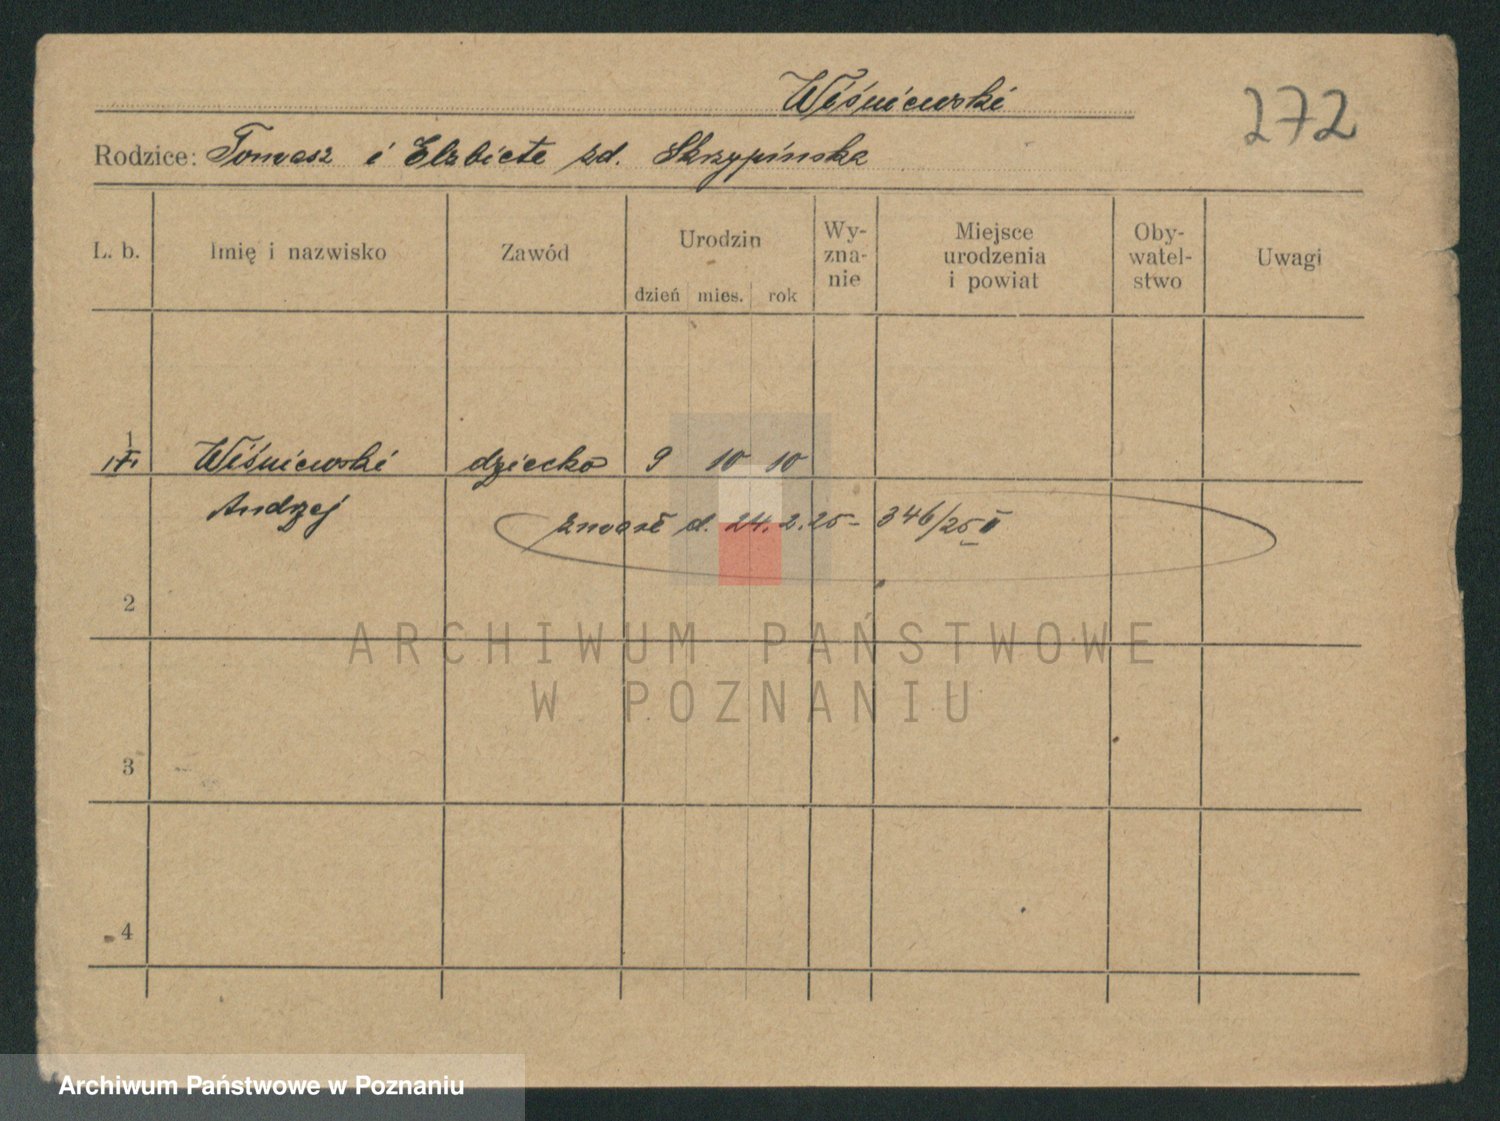 Wiśniewski
272
Rodzice: Tomasz i Elzbieta zd. Skrzypińska
L. b. Imię i nazwisko Zawód Urodzin dzień mies. rok Wy-zna-nie Miejsce urodzenia i powiat Oby-watel-stwo Uwagi
1
Wiśniewski dziecko 9 10 10
Andrzej
zmarł d. 24.2.25 – 346/25 II
2
3
4
ARCHIWUM PAŃSTWOWE
W POZNANIU
Archiwum Państwowe w Poznaniu